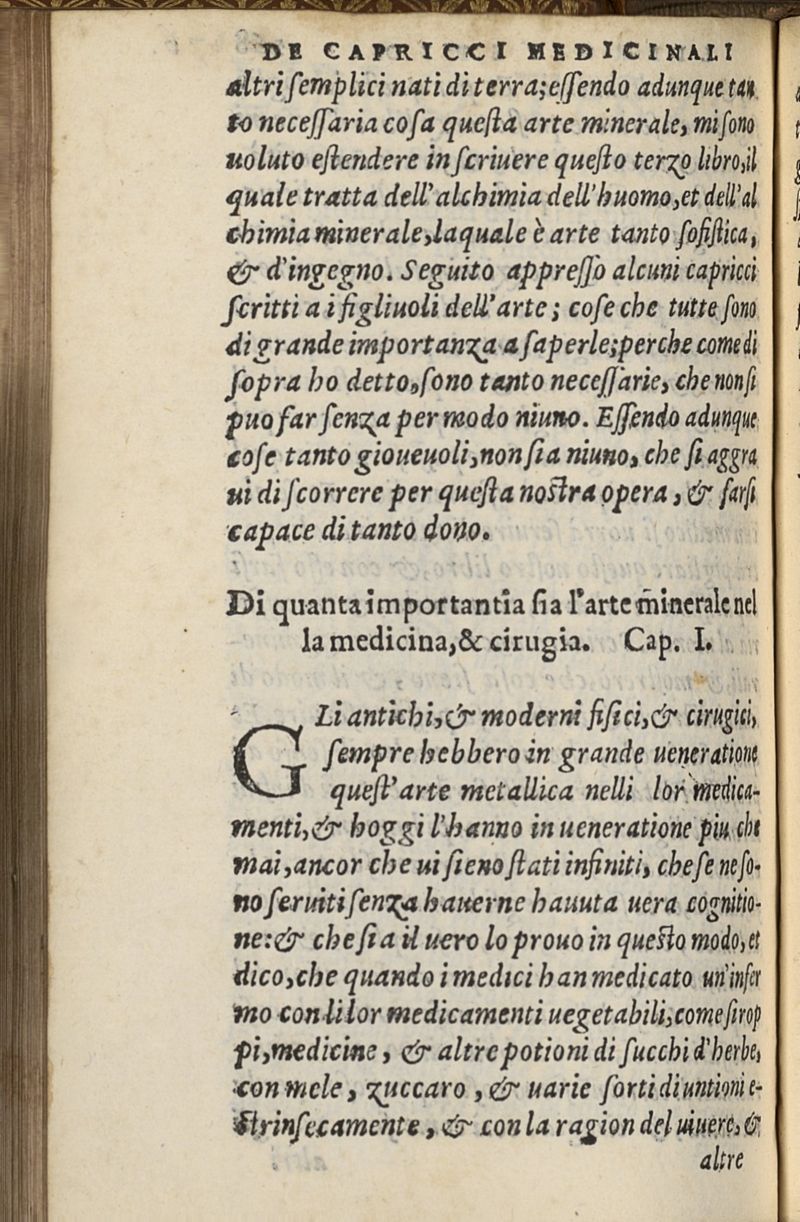 DE CAPRICCI MEDICINALI
altri ſemplici nati di terra; eſſendo adunque tan
to neceſſaria coſa queſta arte minerale, mi ſono
uoluto eſtendere in ſcriuere queſto terzo libro, il
quale tratta dell'alchimia dell'huomo, et dell'al
chimia minerale, laquale è arte tanto ſofiſtica,
& d'ingegno. Seguito appreſſo alcuni capricci
ſcritti a i figliuoli dell'arte; coſe che tutte ſono
di grande importanza a ſaperle; perche come di
ſopra ho detto, ſono tanto neceſſarie, che non ſi
puo far ſenza per modo niuno. Eſſendo adunque
coſe tanto gioueuoli, non ſia niuno, che ſi aggra
ui di ſcorrere per queſta noſtra opera, & farſi
capace di tanto dono.
Di quanta importantia ſia l'arte m̃inerale nel
la medicina, & cirugia. Cap. I.
GLi antichi, & moderni fiſici, & cirugici,
ſempre hebbero in grande ueneratione
queſt'arte metallica nelli lor medica-
menti, & hoggi l'hanno in ueneratione piu che
mai, ancor che ui ſieno ſtati infiniti, che ſe ne ſo-
no ſeruiti ſenza hauerne hauuta uera cognitio-
ne: & che ſia il uero lo prouo in queſto modo, et
dico, che quando i medici han medicato un'infer
mo con li lor medicamenti uegetabili, come ſirop
pi, medicine, & altre potioni di ſucchi d'herbe,
con mele, zuccaro, & uarie ſorti di untioni e-
ſtrinſecamente, & con la ragion del uiuere, &
altre